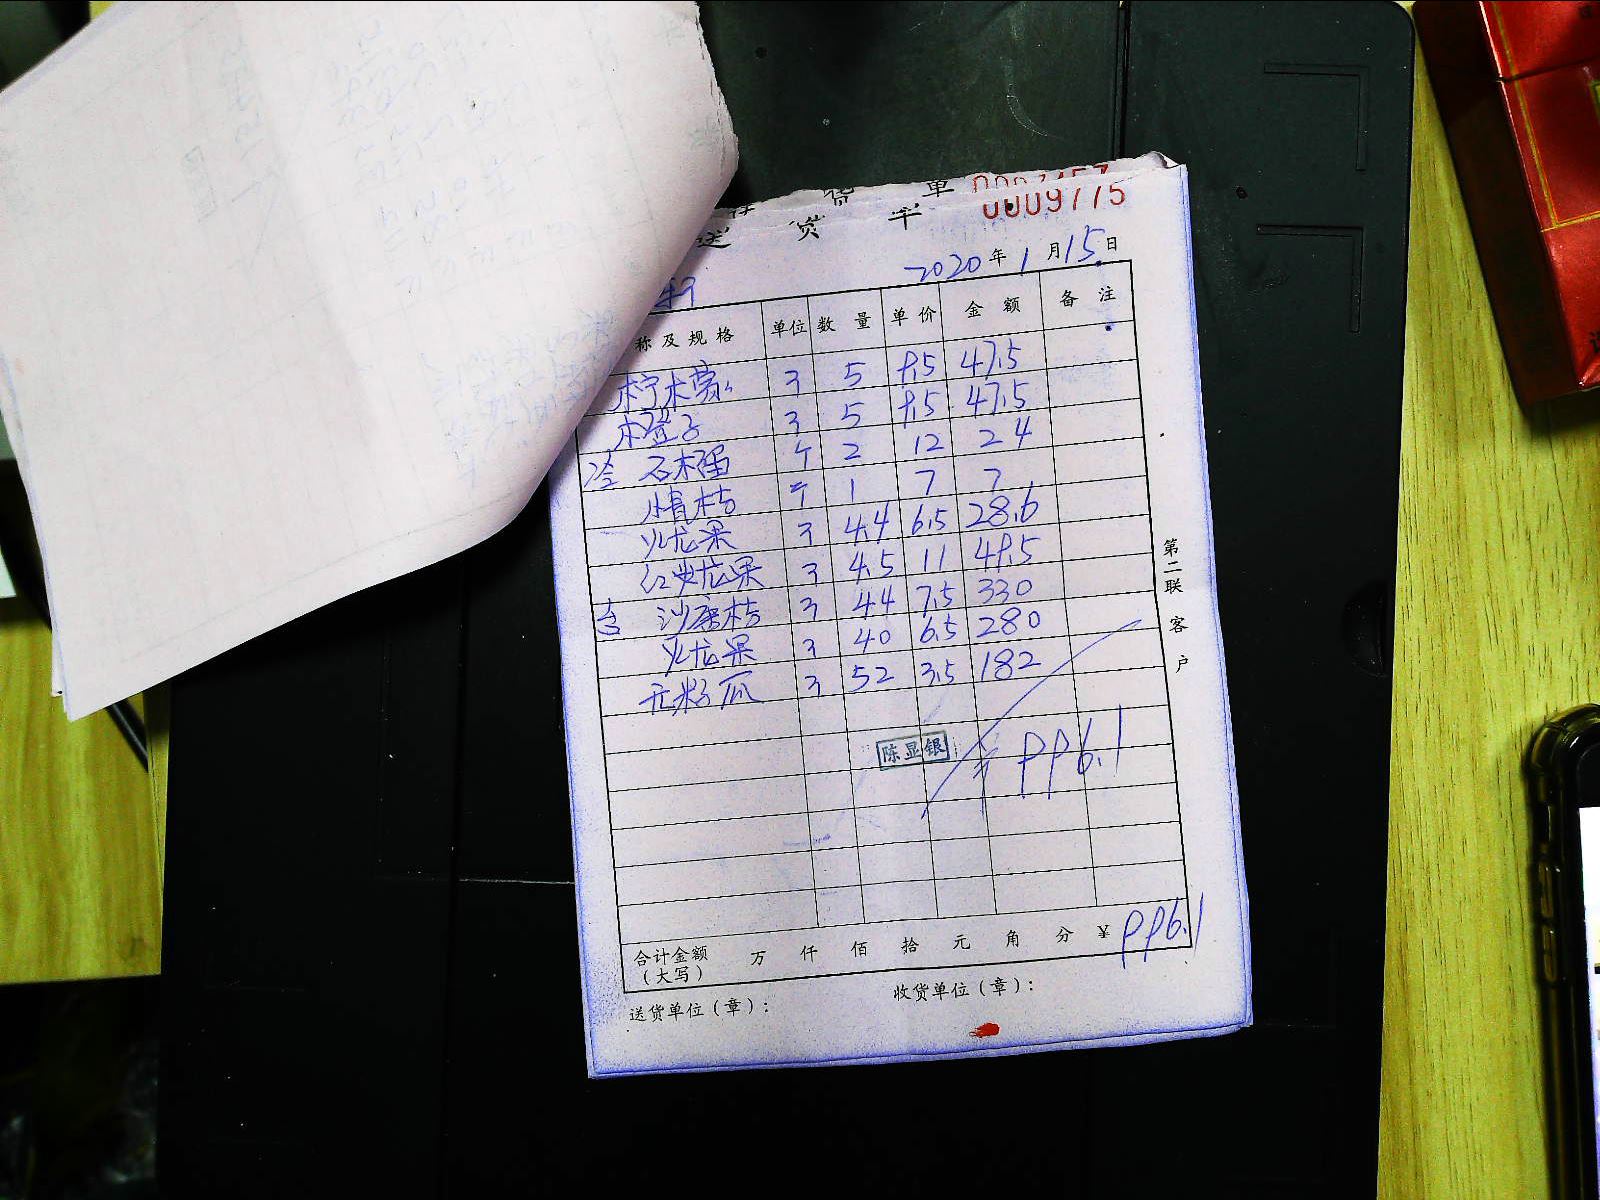 单
0009775
送 货 单
2020年1月15日
称及规格 单位 数量 单价 金额 备注
柠檬 3 5 9.5 47.5
橙子 3 5 9.5 47.5
石榴 个 2 12 24
桔 1 7 7
火龙果 3 4.4 6.5 28.6
红火龙果 3 4.5 11 49.5
沙唐桔 3 44 7.5 330
火龙果 3 40 6.5 280
木瓜 3 52 3.5 182
陈显银
996.1
第二联 客户
合计金额（大写） 万 仟 佰 拾 元 角 分 ¥ 996.1
送货单位（章）： 收货单位（章）：